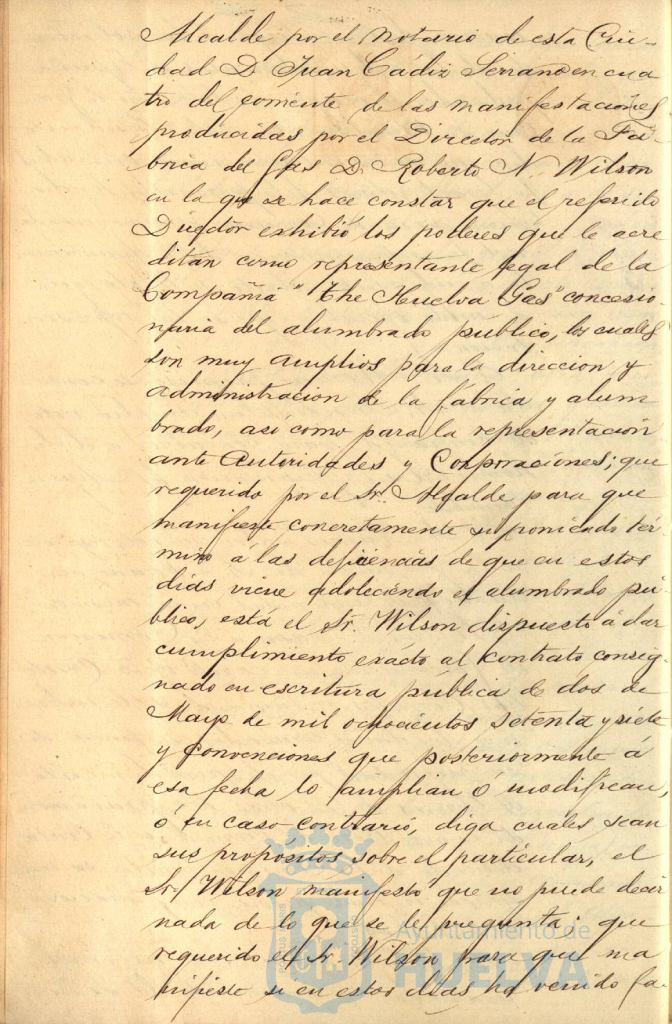 Alcalde por el Notario de esta Ciu-
dad D. Juan Cádiz Serrano en cua
tro del corriente de las manifestaciones
producidas por el Director de la Fá-
brica del Gas D. Roberto N. Wilson
en la que se hace constar que el referido
Director exhibió los poderes que le acre
ditan como representante legal de la
Compañia "The Huelva Gas" concesio-
naria del alumbrado público, los cuales
son muy amplios para la direccion y
administracion de la fábrica y alum
brado, así como para la representacion
ante Autoridades y Corporaciones; que
requerido por el Sr. Alcalde para que
manifieste concretamente si poniendo tér-
mino á las deficiencias de que en estos
dias viene adoleciendo el alumbrado pú-
blico, está el Sr. Wilson dispuesto á dar
cumplimiento exácto al contrato consig-
nado en escritura pública de dos de
Mayo de mil ochocientos setenta y siete
y convenciones que posteriormente á
esa fecha lo amplian ó modifican,
ó en caso contrario, diga cuales sean
sus propósitos sobre el particular, el
Sr. Wilson manifestó que no puede decir
nada de lo que se le pregunta; que
requerido el Sr. Wilson para que ma
nifieste si en estos dias ha venido fa-
Ayuntamiento de
HUELVA